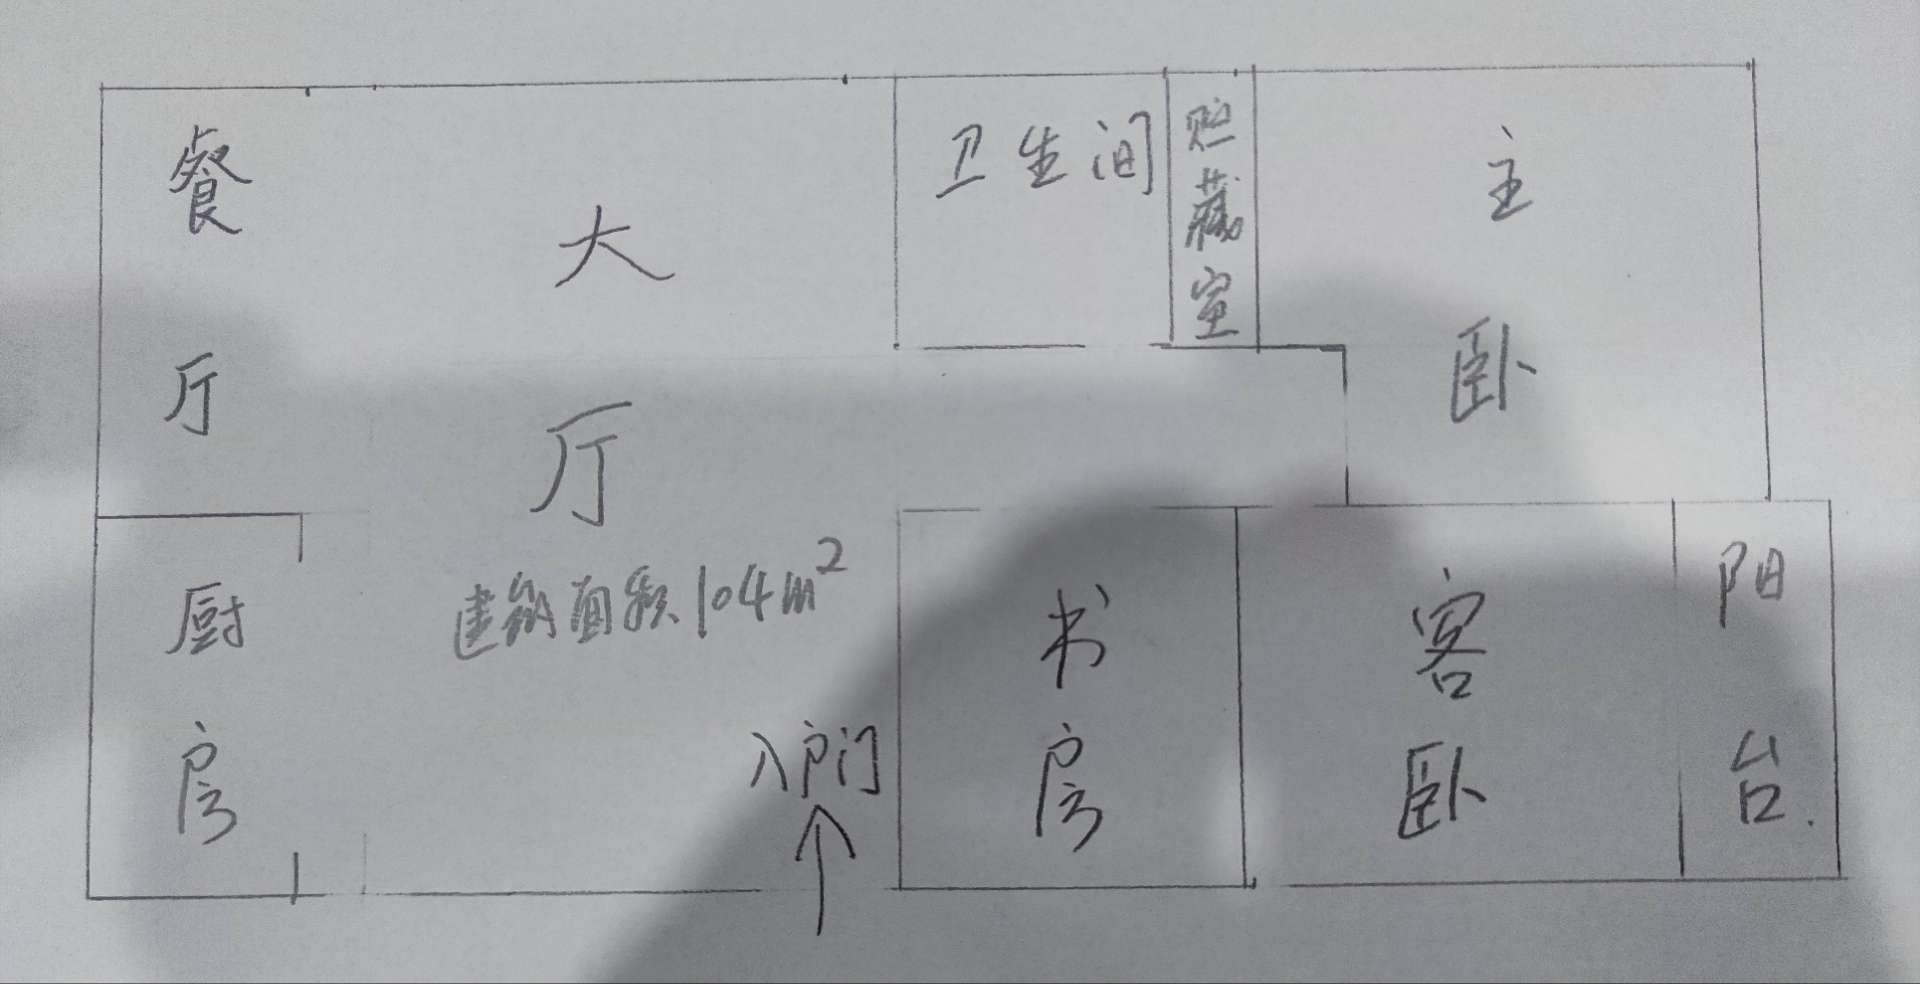 餐厅
大厅
卫生间
贮藏室
主卧
厨房
建筑面积104m²
入户门
书房
客卧
阳台.